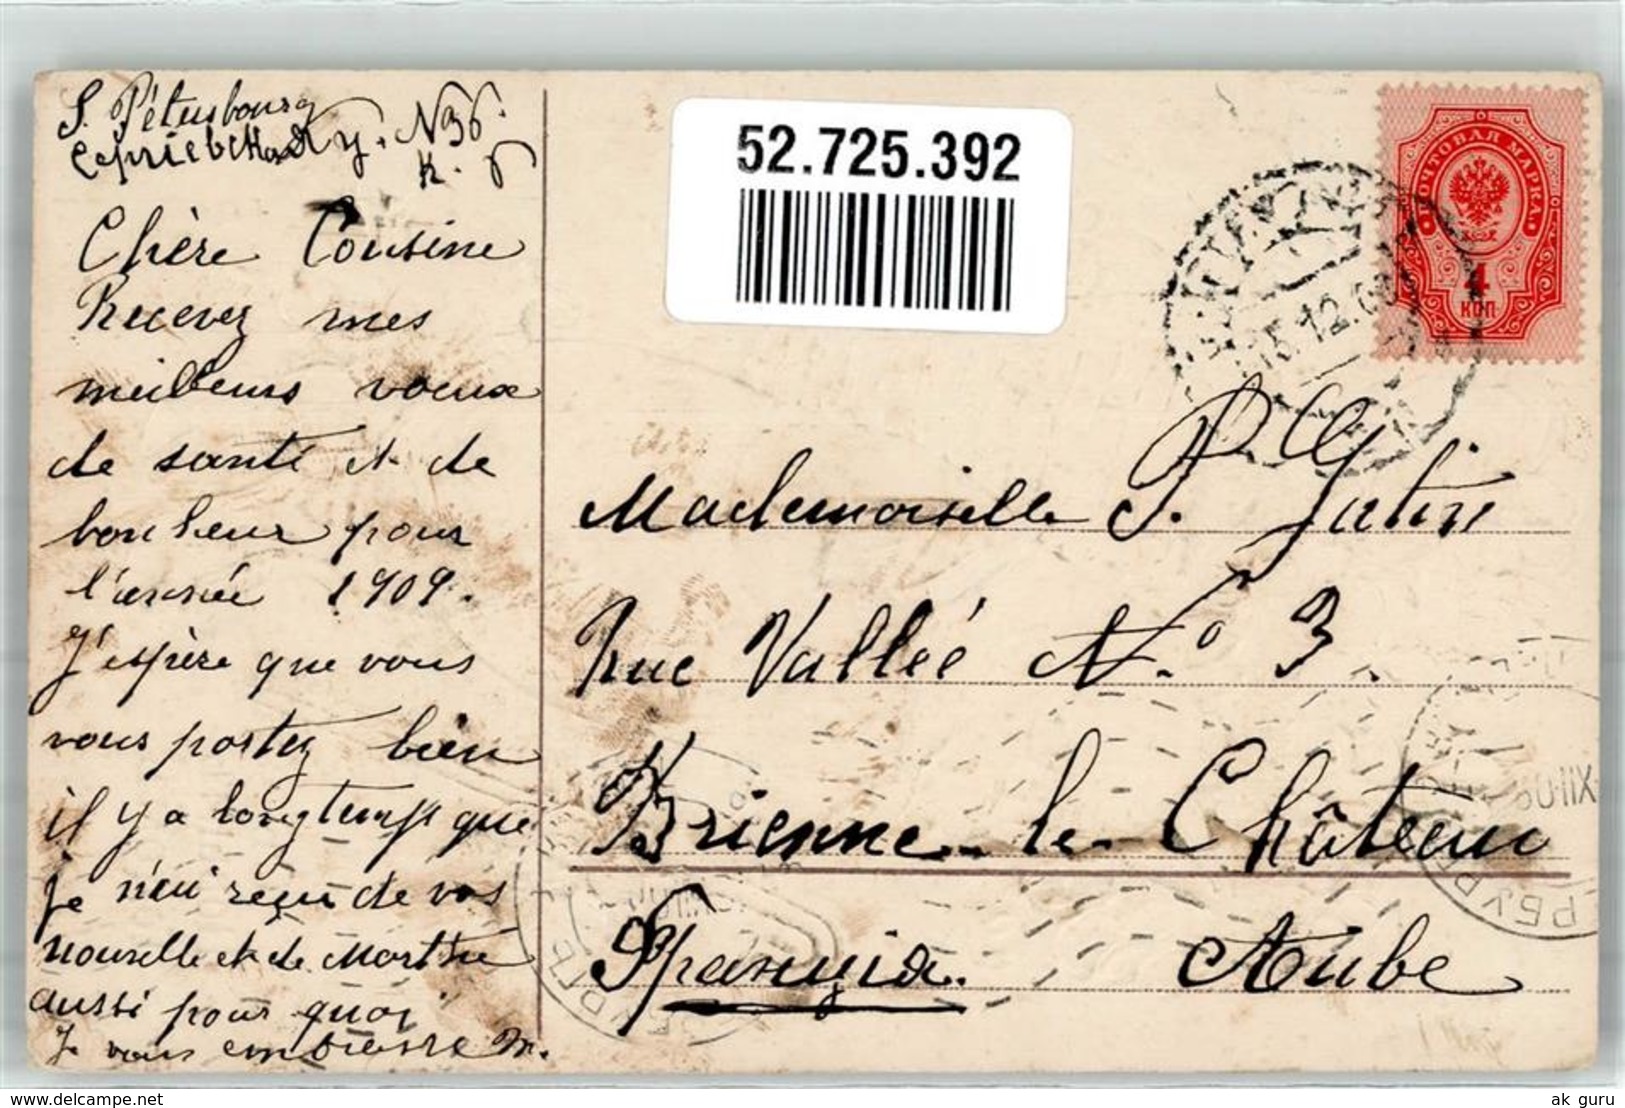 S. Pétersbourg
N 36.
к.
Chère Cousine
Recevez mes
meilleurs voeux
de santé et de
bonheur pour
l'année 1909.
J'espère que vous
vous portez bien
il y a longtemps que
je n'ai reçu de vos
nouvelle et de Marthe
aussi pour quoi
Je vous embrasse M.
52.725.392
ПОЧТОВАЯ МАРКА
4
КОП
15.12.08
Mademoiselle P. Gatin
Rue Vallée No. 3.
Brienne-le-Château
Франция. Aube
www.delcampe.net
ak_guru